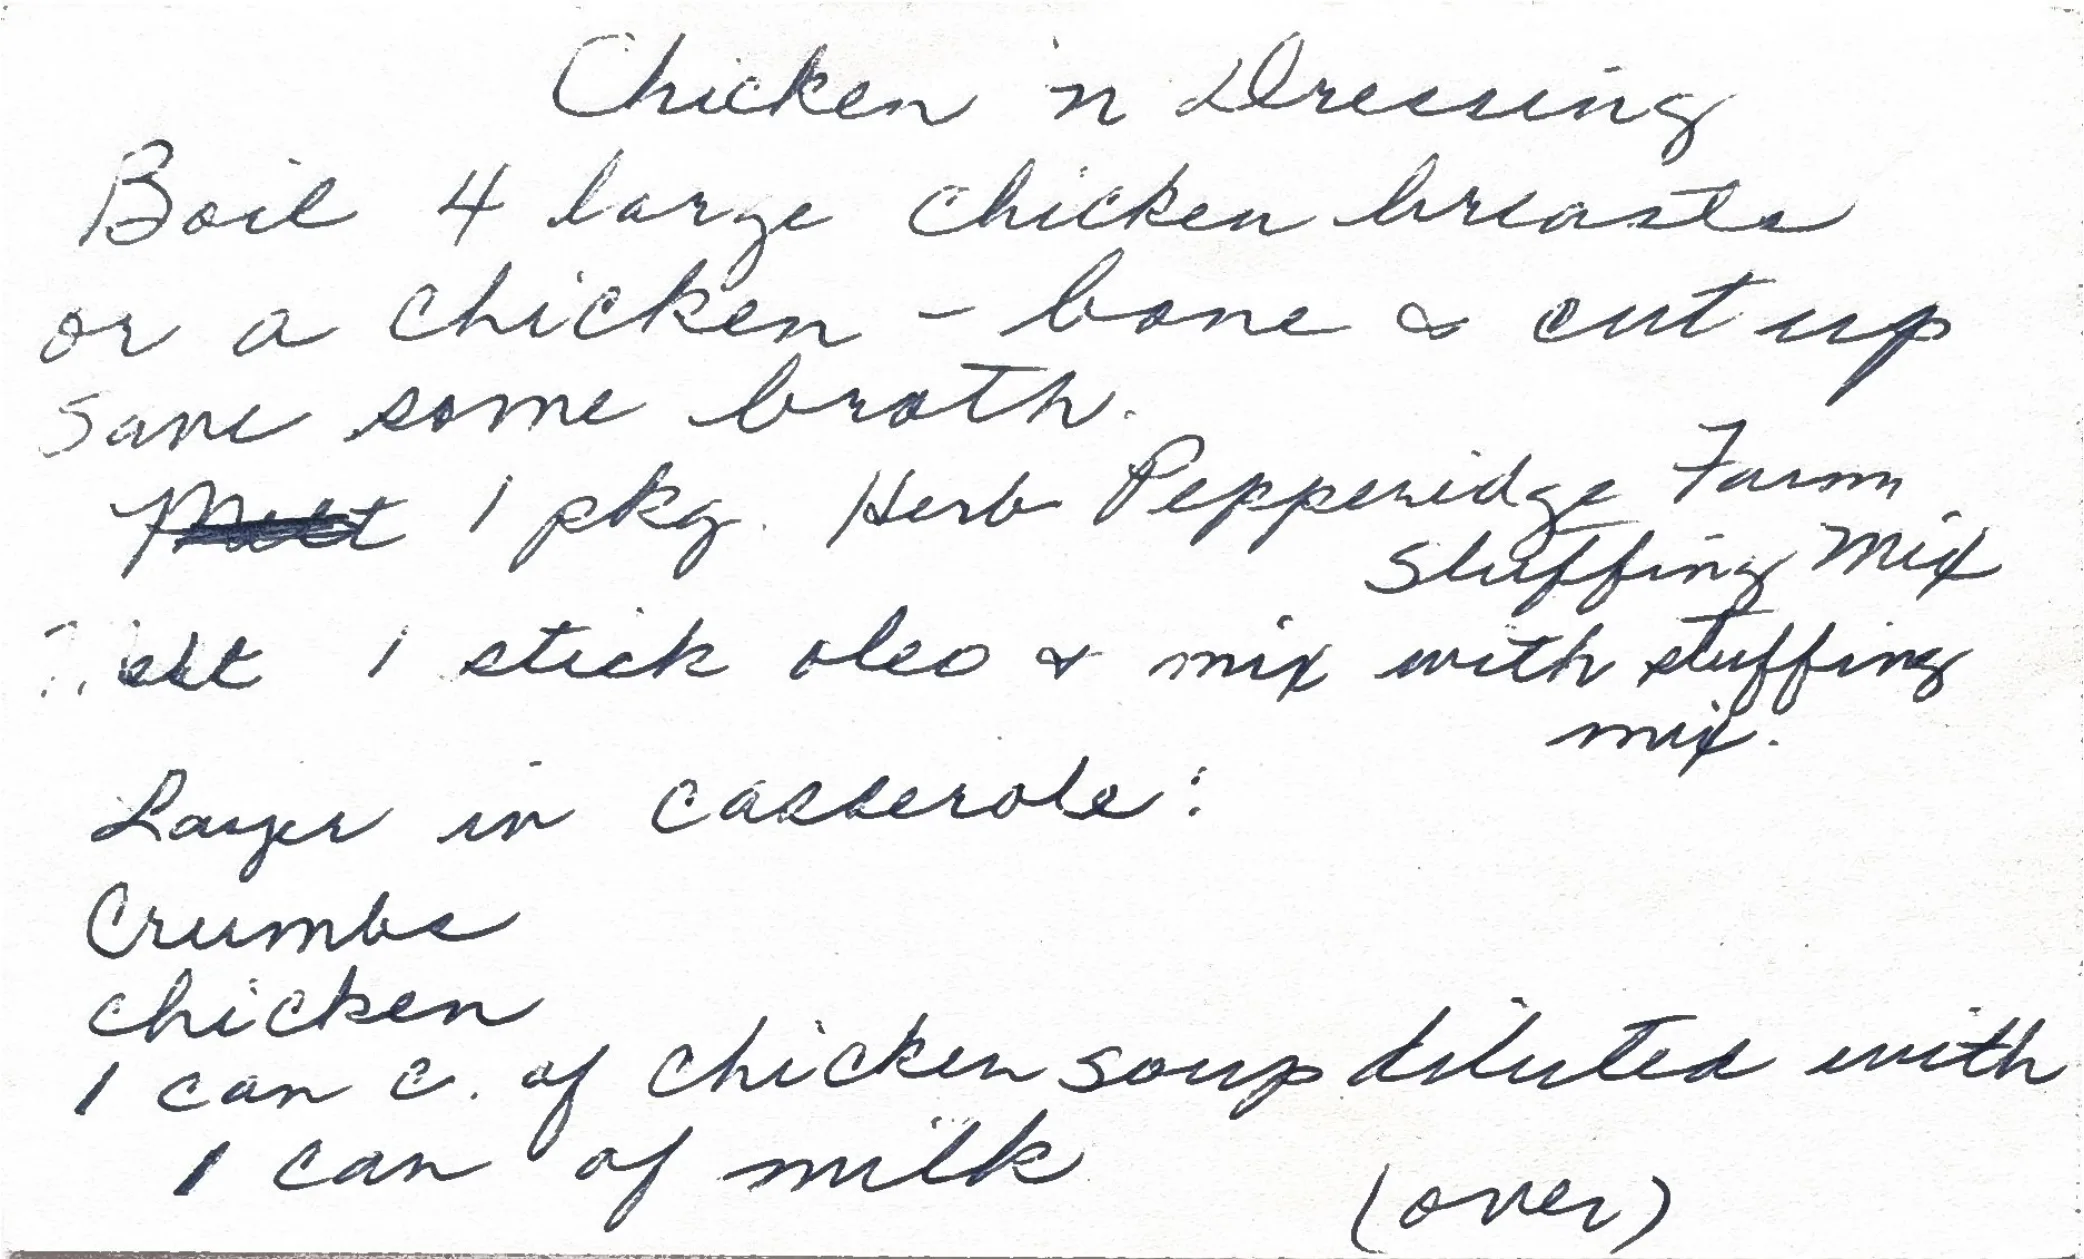 Chicken 'n Dressing
Boil 4 large chicken breasts
or a chicken - bone & cut up
Save some broth.
1 pkg. Herb Pepperidge Farm
Stuffing Mix
Melt 1 stick oleo & mix with stuffing
mix.
Layer in casserole:
Crumbs
chicken
1 can c. of chicken soup diluted with
1 can of milk
(over)